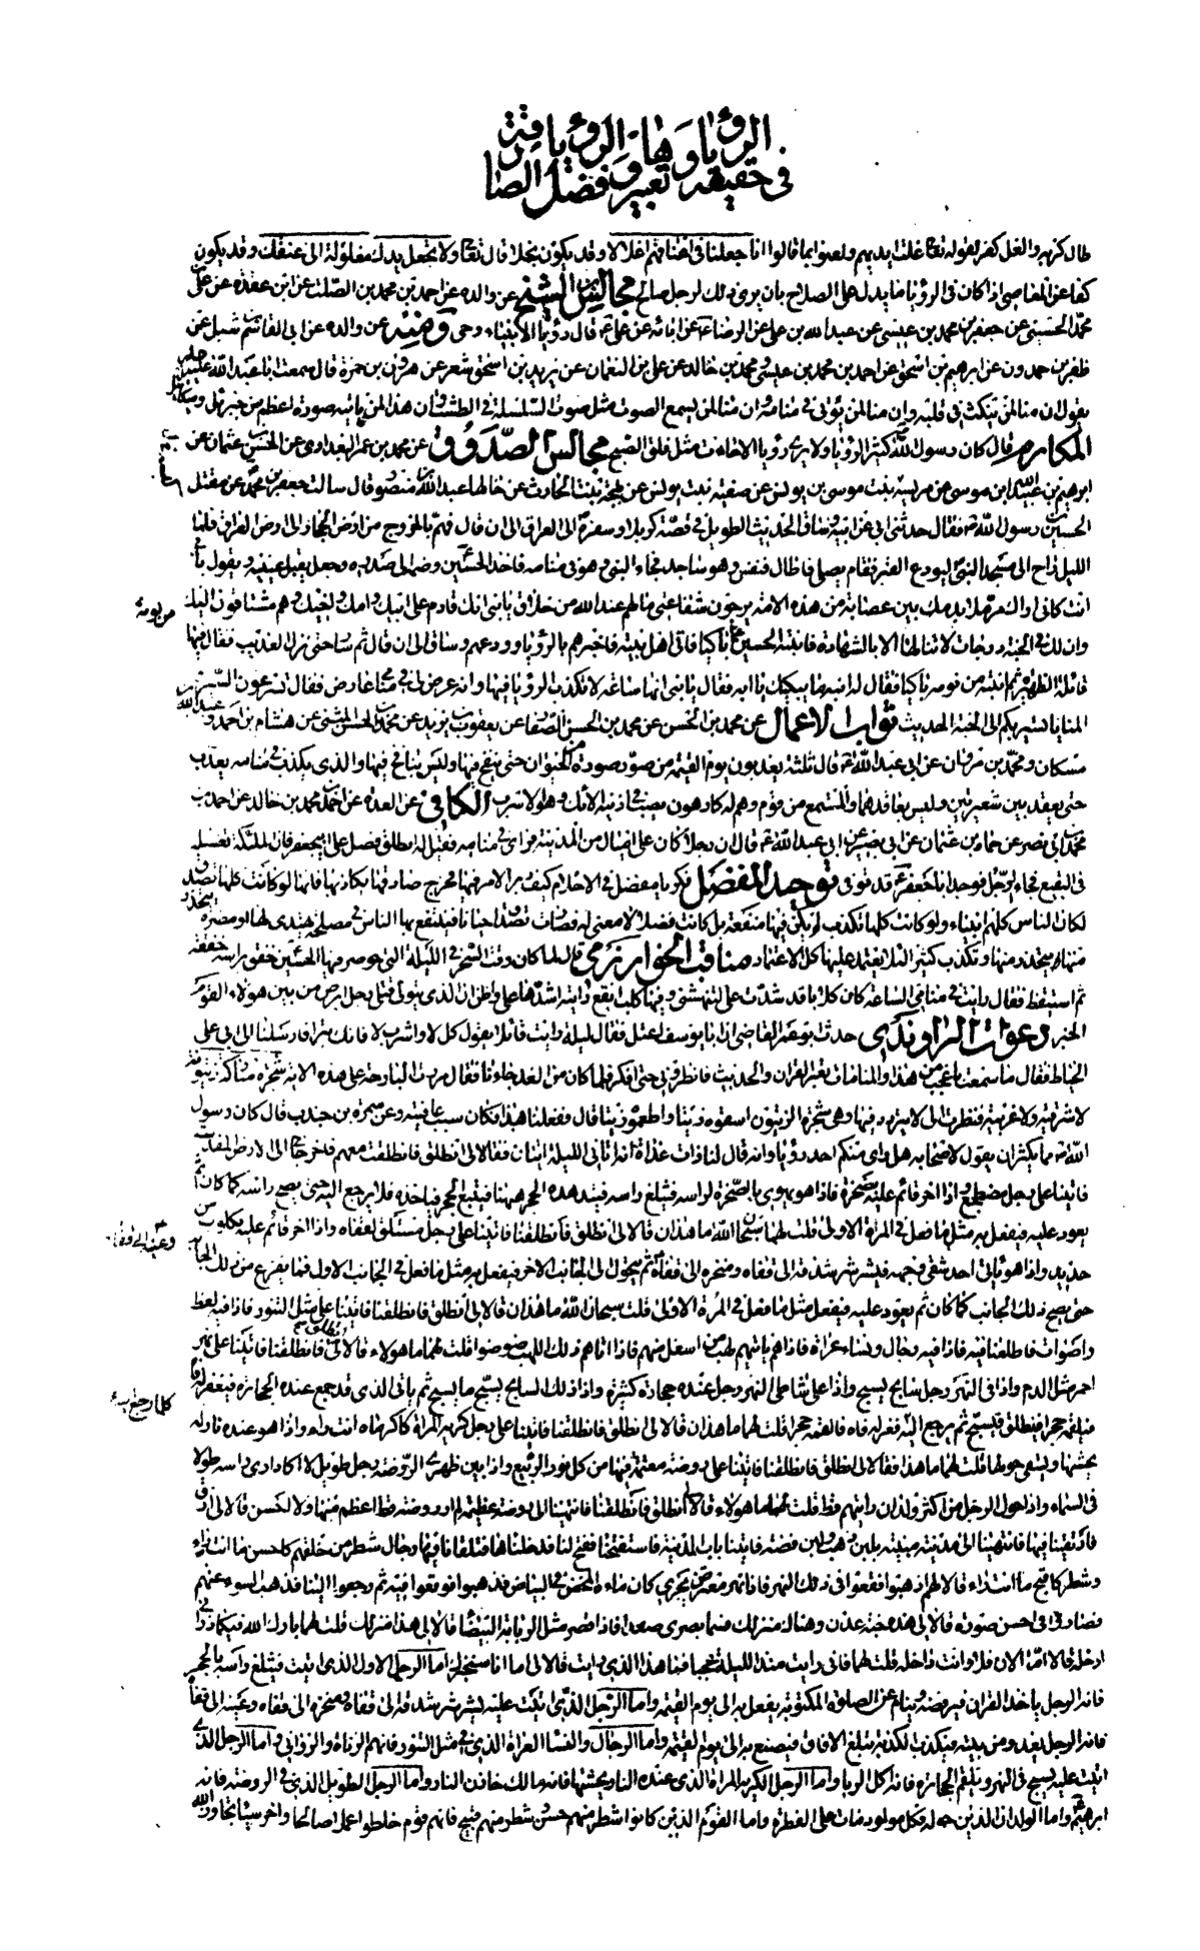 في حقيقة الرؤيا وتعبيرها وفضل الرؤيا الصادقة
طال كربه والغل كفر لقوله تعالى غلت ايديهم ولعنوا بما قالوا انا جعلنا في اعناقهم اغلالا وقد يكون بخلا قال تعالى ولا تجعل يدك مغلولة الى عنقك وقد يكون
كفا عن المعاصي اذا كان في الرؤيا ما يدل على الصلاح بان يرى ذلك لرجل صالح مجالس الشيخ عن والده عن احمد بن محمد بن الصلت عن ابن عقدة عن علي
محمد الحسيني عن جعفر بن محمد بن عيسى عن عبد الله بن علي عن الرضا عن ابائه عن علي ع قال رؤيا الانبياء وحي ومنه عن والده عن ابي القاسم شبل عن
ظفر بن حمدون عن ابرهيم بن اسحق عن احمد بن محمد بن عيسى ومحمد بن خالد عن علي بن النعمان عن يزيد بن اسحق شعر عن هرون بن حمزة قال سمعت ابا عبد الله عليه السلم
يقول ان منا لمن ينكت في قلبه وان منا لمن يؤتى في منامه وان منا لمن يسمع الصوت مثل صوت السلسلة في الطشت وان منا لمن ياتيه صورة اعظم من جبرئيل وميكائيل
المكارم قال كان رسول الله كثير الرؤيا ولا يرى رؤيا الا جاءت مثل فلق الصبح مجالس الصدوق عن محمد بن عمر البغدادي عن الحسن بن عثمان عن
ابرهيم بن عبيد الله ابن موسى عن مريسة بنت موسى بن يونس عن صفية بنت يونس عن بهجة بنت الحارث عن خالها عبد الله بن منصور قال سالت جعفر بن محمد عن مقتل
الحسين بن رسول الله فقال حدثني ابي عن ابيه وساق الحديث الطويل في قصة كربلا وسفره الى العراق الى ان قال فهم بالخروج من ارض الحجاز الى ارض العراق فلما
الليل راح الى مسجد النبي ليودع القبر فقام يصلي فاطال فنعس وهو ساجد فجاء النبي وهو في منامه فاخذ الحسين وضمه الى صدره وجعل يقبل عينيه ويقول بابي
انت كاني اراك مرملا بدمك بين عصابة من هذه الامة يرجون شفاعتي مالهم عند الله من خلاق يا بني انك قادم على ابيك وامك واخيك وهم مشتاقون اليك
وان لك في الجنة درجات لا تنالها الا بالشهادة فانتبه الحسين باكيا فاتى اهل بيته فاخبرهم بالرؤيا وودعهم وساق الى ان قال ثم سار حتى نزل العذيب فقال فيها
قائلة الظهيرة ثم انتبه من نومه باكيا فقال له ابنه ما يبكيك يا ابه فقال يا بني انها ساعة لا تكذب الرؤيا فيها وانه عرض لي في منامي عارض فقال تسرعون السير و
المنايا تسير بكم الى الجنة الحديث ثواب الاعمال عن محمد بن الحسن عن محمد بن الحسن الصفار عن يعقوب بن يزيد عن محمد بن الحسن الميثمي عن هشام بن احمد وعبد الله بن
مسكان ومحمد بن مروان عن ابي عبد الله ع قال ثلثة يعذبون يوم القيمة من صور صورة من الحيوان حتى ينفخ فيها وليس بنافخ فيها والذي يكذب في منامه يعذب
حتى يعقد بين شعيرتين وليس بعاقدهما والمستمع من قوم وهم له كارهون يصب في اذنيه الانك وهو الاسرب الكافي عن العدة عن احمد بن محمد بن خالد عن احمد بن
محمد بن ابي نصر عن حماد بن عثمان عن ابي بصير عن ابي عبد الله ع قال ان رجلا كان على اميال من المدينة فراى في منامه فقيل له انطلق فصل على ابي جعفر فان الملئكة تغسله
في البقيع فجاء الرجل فوجد ابا جعفر ع قد توفي توحيد المفضل فكر يا مفضل في الاحلام كيف دبر الامر فيها فمزج صادقها بكاذبها فانها لو كانت كلها تصدق
لكان الناس كلهم انبياء ولو كانت كلها تكذب لم يكن فيها منفعة بل كانت فضلا لا معنى له فصارت تصدق احيانا فينتفع بها الناس في مصلحة يهتدى لها او مضرة يتحذر
منها وتكذب كثيرا لئلا يعتمد عليها كل الاعتماد مناقب الخوارزمي قال لما كان وقت السحر في الليلة التي حوصر فيها الحسين خفق براسه خفقة
ثم استيقظ فقال رايت في منامي الساعة كان كلابا قد شدت علي تنهشني وفيها كلب ابقع رايته اشدها علي واظن ان الذي يتولى قتلي رجل ابرص من بين هؤلاء القوم
الخبر دعوات الراوندي حدث ابو عمر القاضي ان ابا يوسف اعتل فقال ليلة رايت قائلا يقول كل لا واشرب لا فانك تبرا فارسلنا الى ابي علي
الخياط فقال ما سمعت باعجب من هذا والمنامات بغير القران والحديث فانظروني حتى افكر فلما كان من الغد جاءنا فقال مررت البارحة على هذه الاية شجرة مباركة زيتونة
لا شرقية ولا غربية فنظرت الى لا يتردد فيها وهي شجرة الزيتون اسقوه زيتا واطعموه زيتا قال ففعلنا هذا فكان سبب عافيته وعن سمرة بن جندب قال كان رسول
الله مما يكثر ان يقول لاصحابه هل راى منكم احد رؤيا وانه قال لنا ذات غداة انه اتاني الليلة اتيان فقالا لي انطلق فانطلقت معهم فاخرجاني الى الارض المقدسة
فاتينا على رجل مضطجع واذا اخر قائم عليه بصخرة فاذا هو يهوي بالصخرة لراسه فتثلغ راسه فيتدهده الحجر ههنا فيتبع الحجر فياخذه فلا يرجع اليه حتى يصح راسه كما كان ثم
يعود عليه فيفعل به مثل ما فعل في المرة الاولى قلت لهما سبحان الله ما هذان قالا لي انطلق فانطلقنا فاتينا على رجل مستلق لقفاه واذا اخر قائم عليه بكلوب من
حديد واذا هو ياتي احد شقي وجهه فيشرشر شدقه الى قفاه ومنخره الى قفاه ثم يتحول الى الجانب الاخر فيفعل به مثل ما فعل في الجانب الاول فما يفرغ من ذلك الجانب
حتى يصح ذلك الجانب كما كان ثم يعود عليه فيفعل مثل ما فعل في المرة الاولى قلت سبحان الله ما هذان قالا لي انطلق فانطلقنا فاتينا على مثل التنور فاذا فيه لغط
واصوات فاطلعنا فيه فاذا فيه رجال ونساء عراة فاذا هم ياتيهم لهب من اسفل منهم فاذا اتاهم ذلك اللهب ضوضوا قلت لهما ما هؤلاء قالا لي انطلق فانطلقنا فاتينا على نهر
احمر مثل الدم واذا في النهر رجل سابح يسبح واذا على شاطئ النهر رجل عنده حجارة كثيرة واذا ذلك السابح يسبح ما يسبح ثم ياتي الذي قد جمع عنده الحجارة فيفغر له فاه
فيلقمه حجرا فينطلق فيسبح ثم يرجع اليه فغر له فاه فالقمه حجرا قلت لهما ما هذان قالا لي انطلق فانطلقنا فاتينا على رجل كريه المراة كاكره ما انت راء واذا هو عنده نار له
يحشها ويسعى حولها قلت لهما ما هذا فقالا لي انطلق فانطلقنا فاتينا على روضة معتمة فيها من كل نور الربيع واذا بين ظهري الروضة رجل طويل لا اكاد ارى راسه طولا
في السماء واذا حول الرجل من اكثر ولدان رايتهم قط قلت لهما ما هؤلاء قالا لي انطلق فانطلقنا فانتهينا الى روضة عظيمة لم ار روضة قط اعظم منها ولا احسن قالا لي ارق
فارتقينا فيها فانتهينا الى مدينة مبنية بلبن ذهب ولبن فضة فاتينا باب المدينة فاستفتحنا ففتح لنا فدخلناها فتلقانا فيها رجال شطر من خلقهم كاحسن ما انت راء
وشطر كاقبح ما انت راء قالا لهم اذهبوا فقعوا في ذلك النهر فاذا نهر معترض يجري كان ماءه المحض في البياض فذهبوا فوقعوا فيه ثم رجعوا الينا قد ذهب السوء عنهم
فصاروا في احسن صورة قالا لي هذه جنة عدن وهناك منزلك فسما بصري صعدا فاذا قصر مثل الربابة البيضاء قالا لي هذا منزلك قلت لهما بارك الله فيكما ذراني
ادخله قالا اما الان فلا وانت داخله قلت لهما فاني رايت منذ الليلة عجبا فما هذا الذي رايت قالا لي اما انا سنخبرك اما الرجل الاول الذي اتيت فيثلغ راسه بالحجر
فانه الرجل ياخذ القران فيرفضه وينام عن الصلوة المكتوبة يفعل به الى يوم القيمة واما الرجل الذي اتيت عليه يشرشر شدقه الى قفاه ومنخره الى قفاه وعينه الى قفاه
فانه الرجل يغدو من بيته فيكذب الكذبة تبلغ الافاق فيصنع به الى يوم القيمة واما الرجال والنساء العراة الذين في مثل التنور فانهم الزناة والزواني واما الرجل الذي
اتيت عليه يسبح في النهر ويلقم الحجارة فانه اكل الربوا واما الرجل الكريه المراة الذي عنده النار يحشها فانه مالك خازن النار واما الرجل الطويل الذي في الروضة فانه
ابرهيم ع واما الولدان الذين حوله فكل مولود مات على الفطرة واما القوم الذين كانوا شطر منهم حسن وشطر منهم قبيح فانهم قوم خلطوا عملا صالحا واخر سيئا تجاوز الله
وعينه الى قفاه
كلما رجع اليه